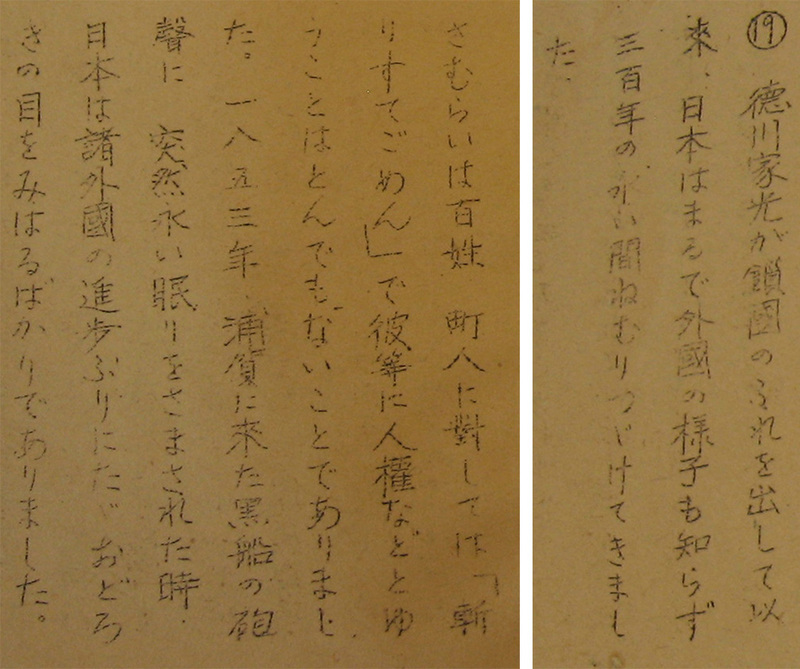 ⑲ 德川家光が鎖國のふれを出して以
來、日本はまるで外國の様子も知らず
三百年の永い間ねむりつゞけてきまし
た。
さむらいは百姓 町人に對しては「斬
りすてごめん」で彼等に人權などとゆ
うことはとんでもないことでありまし
た。一八五三年、浦賀に來た黒船の砲
聲に 突然永い眠りをさまされた時、
日本は諸外國の進歩ぶりにたゞおどろ
きの目をみはるばかりでありました。